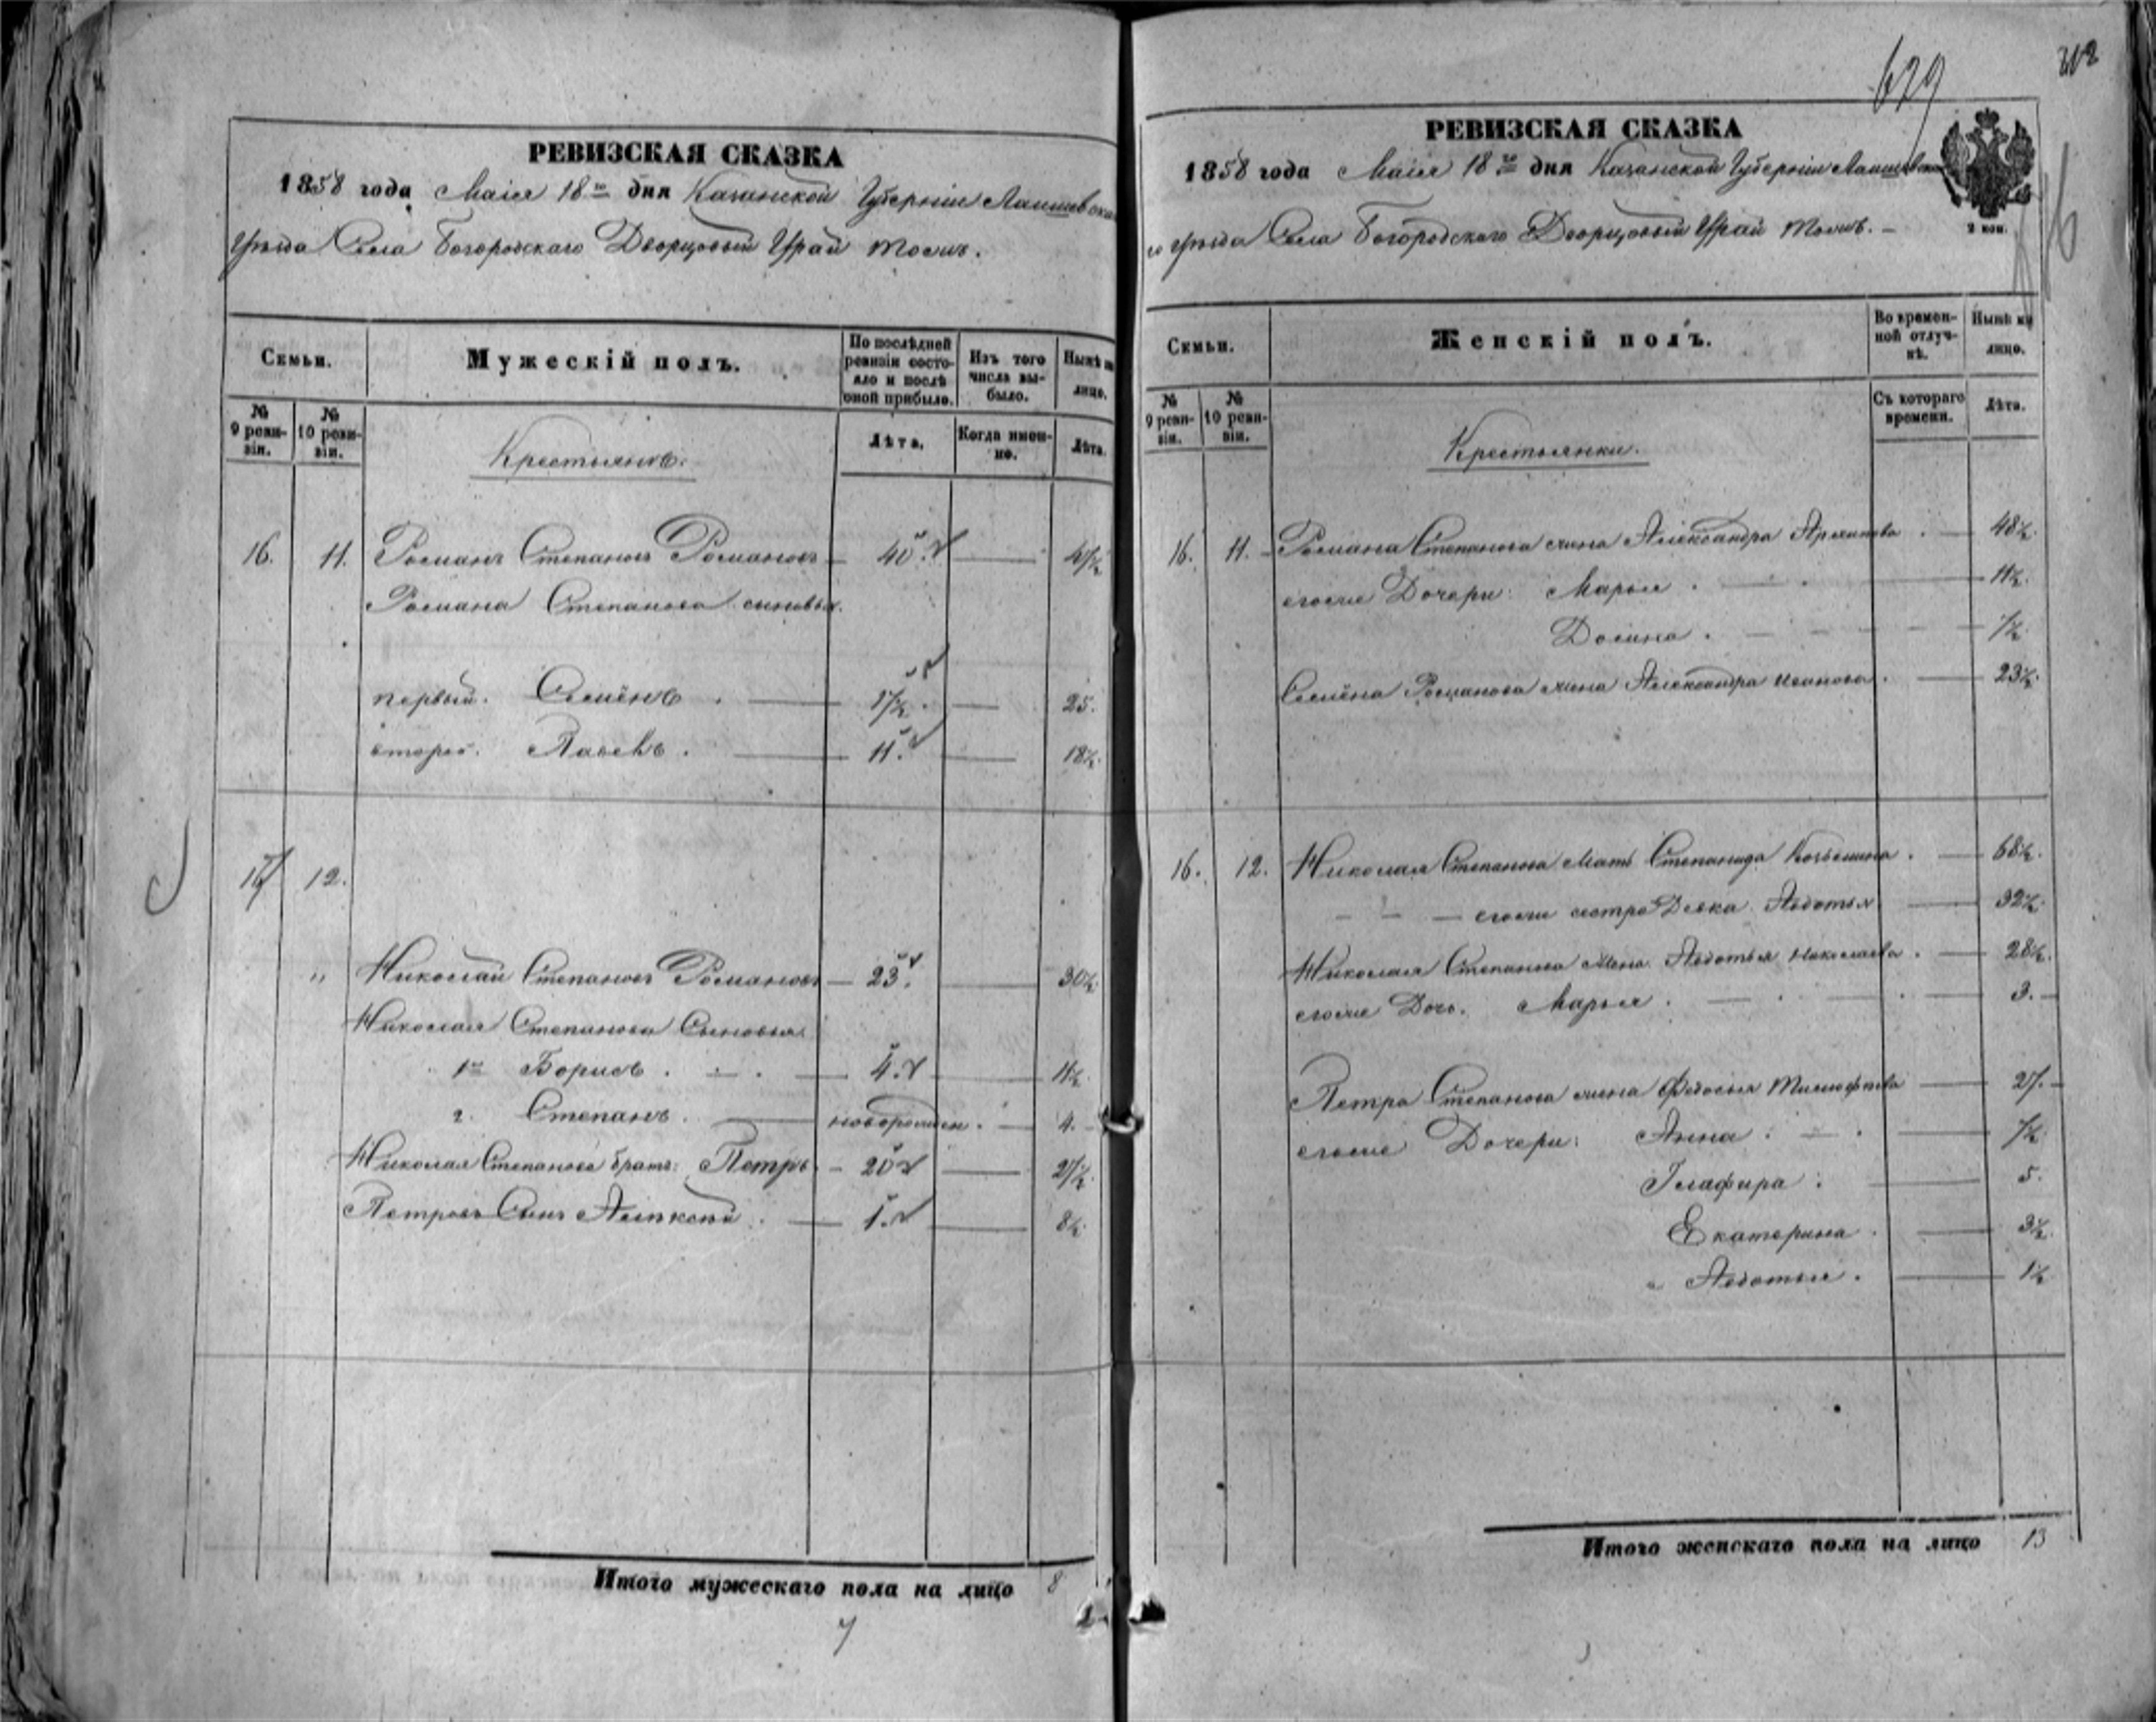 РЕВИЗСКАЯ СКАЗКА
1858 года Маія 18го дня Казанской Губерніи Лаишевска
Уѣзда Села Богородскаго Дворцовый Урай тожъ.
Семьи.
Мужескій полъ.
По послѣдней ревизіи состояло и послѣ оной прибыло.
Изъ того числа выбыло.
Нынѣ на лицо.
№ 9 ревизіи.
№ 10 ревизіи.
Крестьянъ.
Лѣта.
Когда именно.
Лѣта.
16. 11. Романъ Степановъ Романовъ 40. 47½
Романа Степанова сыновья.
первый. Семёнъ 17½. 25.
второй. Павелъ. 11. 18½.
16 12.
" Николай Степановъ Романовъ 23. 30½.
Николая Степанова Сыновья
1й Борисъ. 4. 11½.
2. Степанъ. новорожден. 4.
Николая Степанова братъ: Петръ 20 27½.
Петровъ Сынъ Алѣксѣй. 1. 8½.
Итого мужескаго пола на лицо 8
7
629
312
РЕВИЗСКАЯ СКАЗКА
1858 года Маія 18го дня Казанской Губерніи Лаишевска
го Уѣзда Села Богородскаго Дворцовый Урай тожъ.
2 коп.
Семьи.
Женскій полъ.
Во временной отлучкѣ.
Нынѣ на лицо.
№ 9 ревизіи.
№ 10 ревизіи.
Крестьянки.
Съ котораго времени.
Лѣта.
16. 11. Романа Степанова жена Александра 48½.
егоже Дочери: Марья. 11½.
Домна. 7½.
Семёна Романова жена Александра Иванова. 23½.
16. 12. Николая Степанова Мать Степанида Козьмина. 68½.
егоже сестра Девка Авдотья 32½.
Николая Степанова Жена Авдотья Николаева. 28½.
егоже Дочь. Марья. 3.
Петра Степанова жена Федосья Тимофѣева 27.
егоже Дочери: Анна. 7½.
Глафира: 5.
Екатерина. 3½.
Авдотья. 1½
Итого женскаго пола на лицо 13